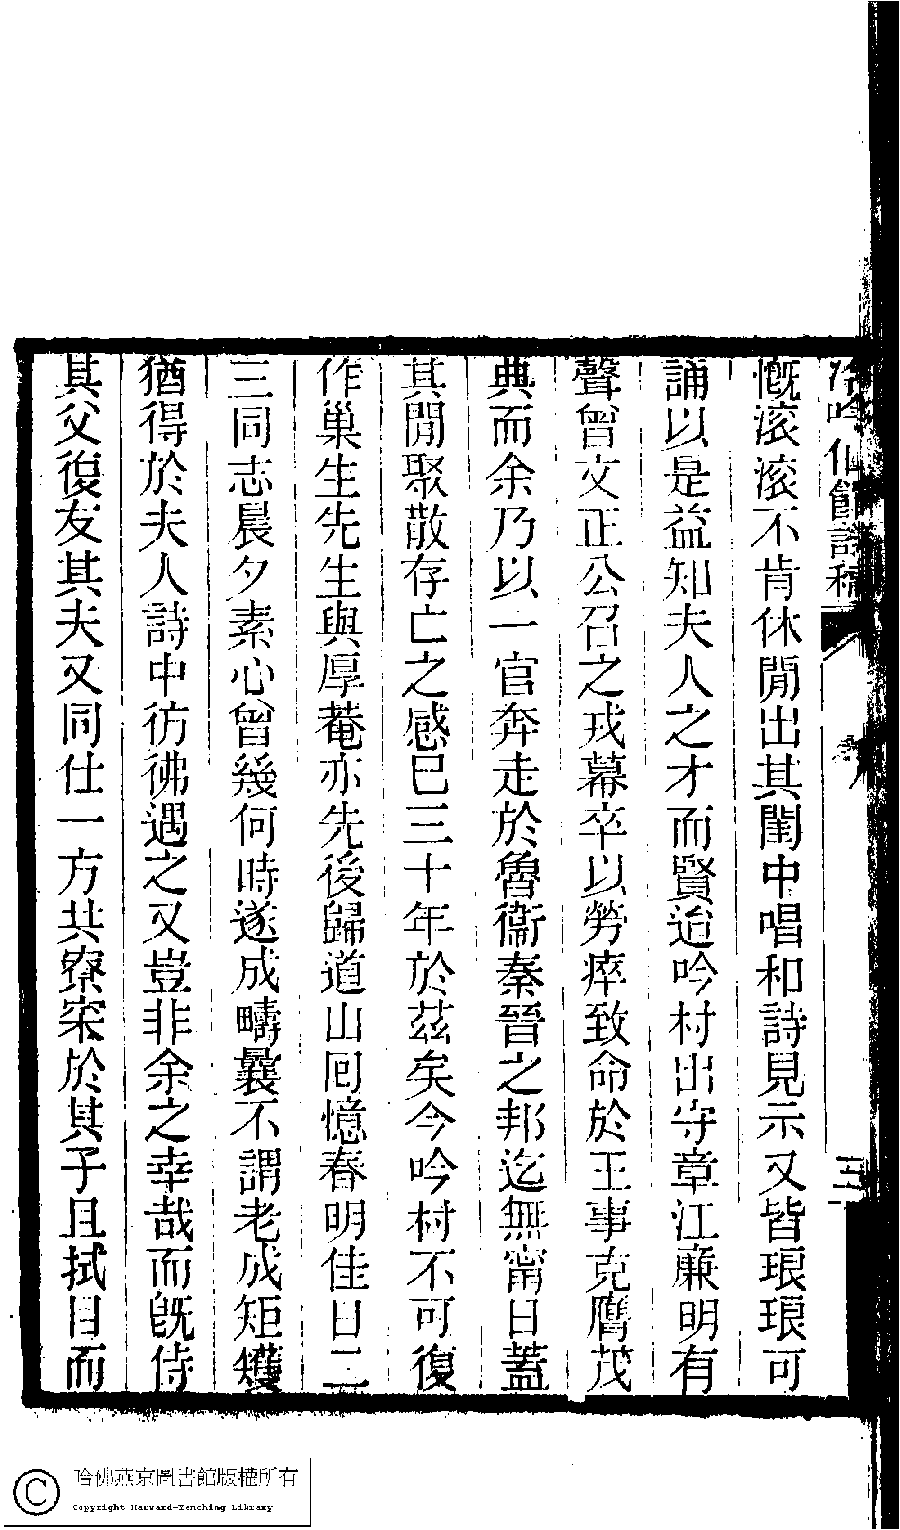 冷吟仙館詩稿
三
慨滚滚不肯休閒出其閨中唱和詩見示又皆琅琅可
誦以是益知夫人之才而賢迨吟村出守章江廉明有
聲曾文正公召之戎幕卒以勞瘁致命於王事克膺茂
典而余乃以一官奔走於魯衞秦晉之邦迄無甯日蓋
其閒聚散存亡之感巳三十年於茲矣今吟村不可復
作巢生先生與厚菴亦先後歸道山囘憶春明佳日二
三同志晨夕素心曾幾何時遂成疇曩不謂老成矩矱
猶得於夫人詩中彷彿遇之又豈非余之幸哉而旣侍
其父復友其夫又同仕一方共寮寀於其子且拭目而
哈佛燕京圖書館版權所有
Copyright Harvard-Yenching Library